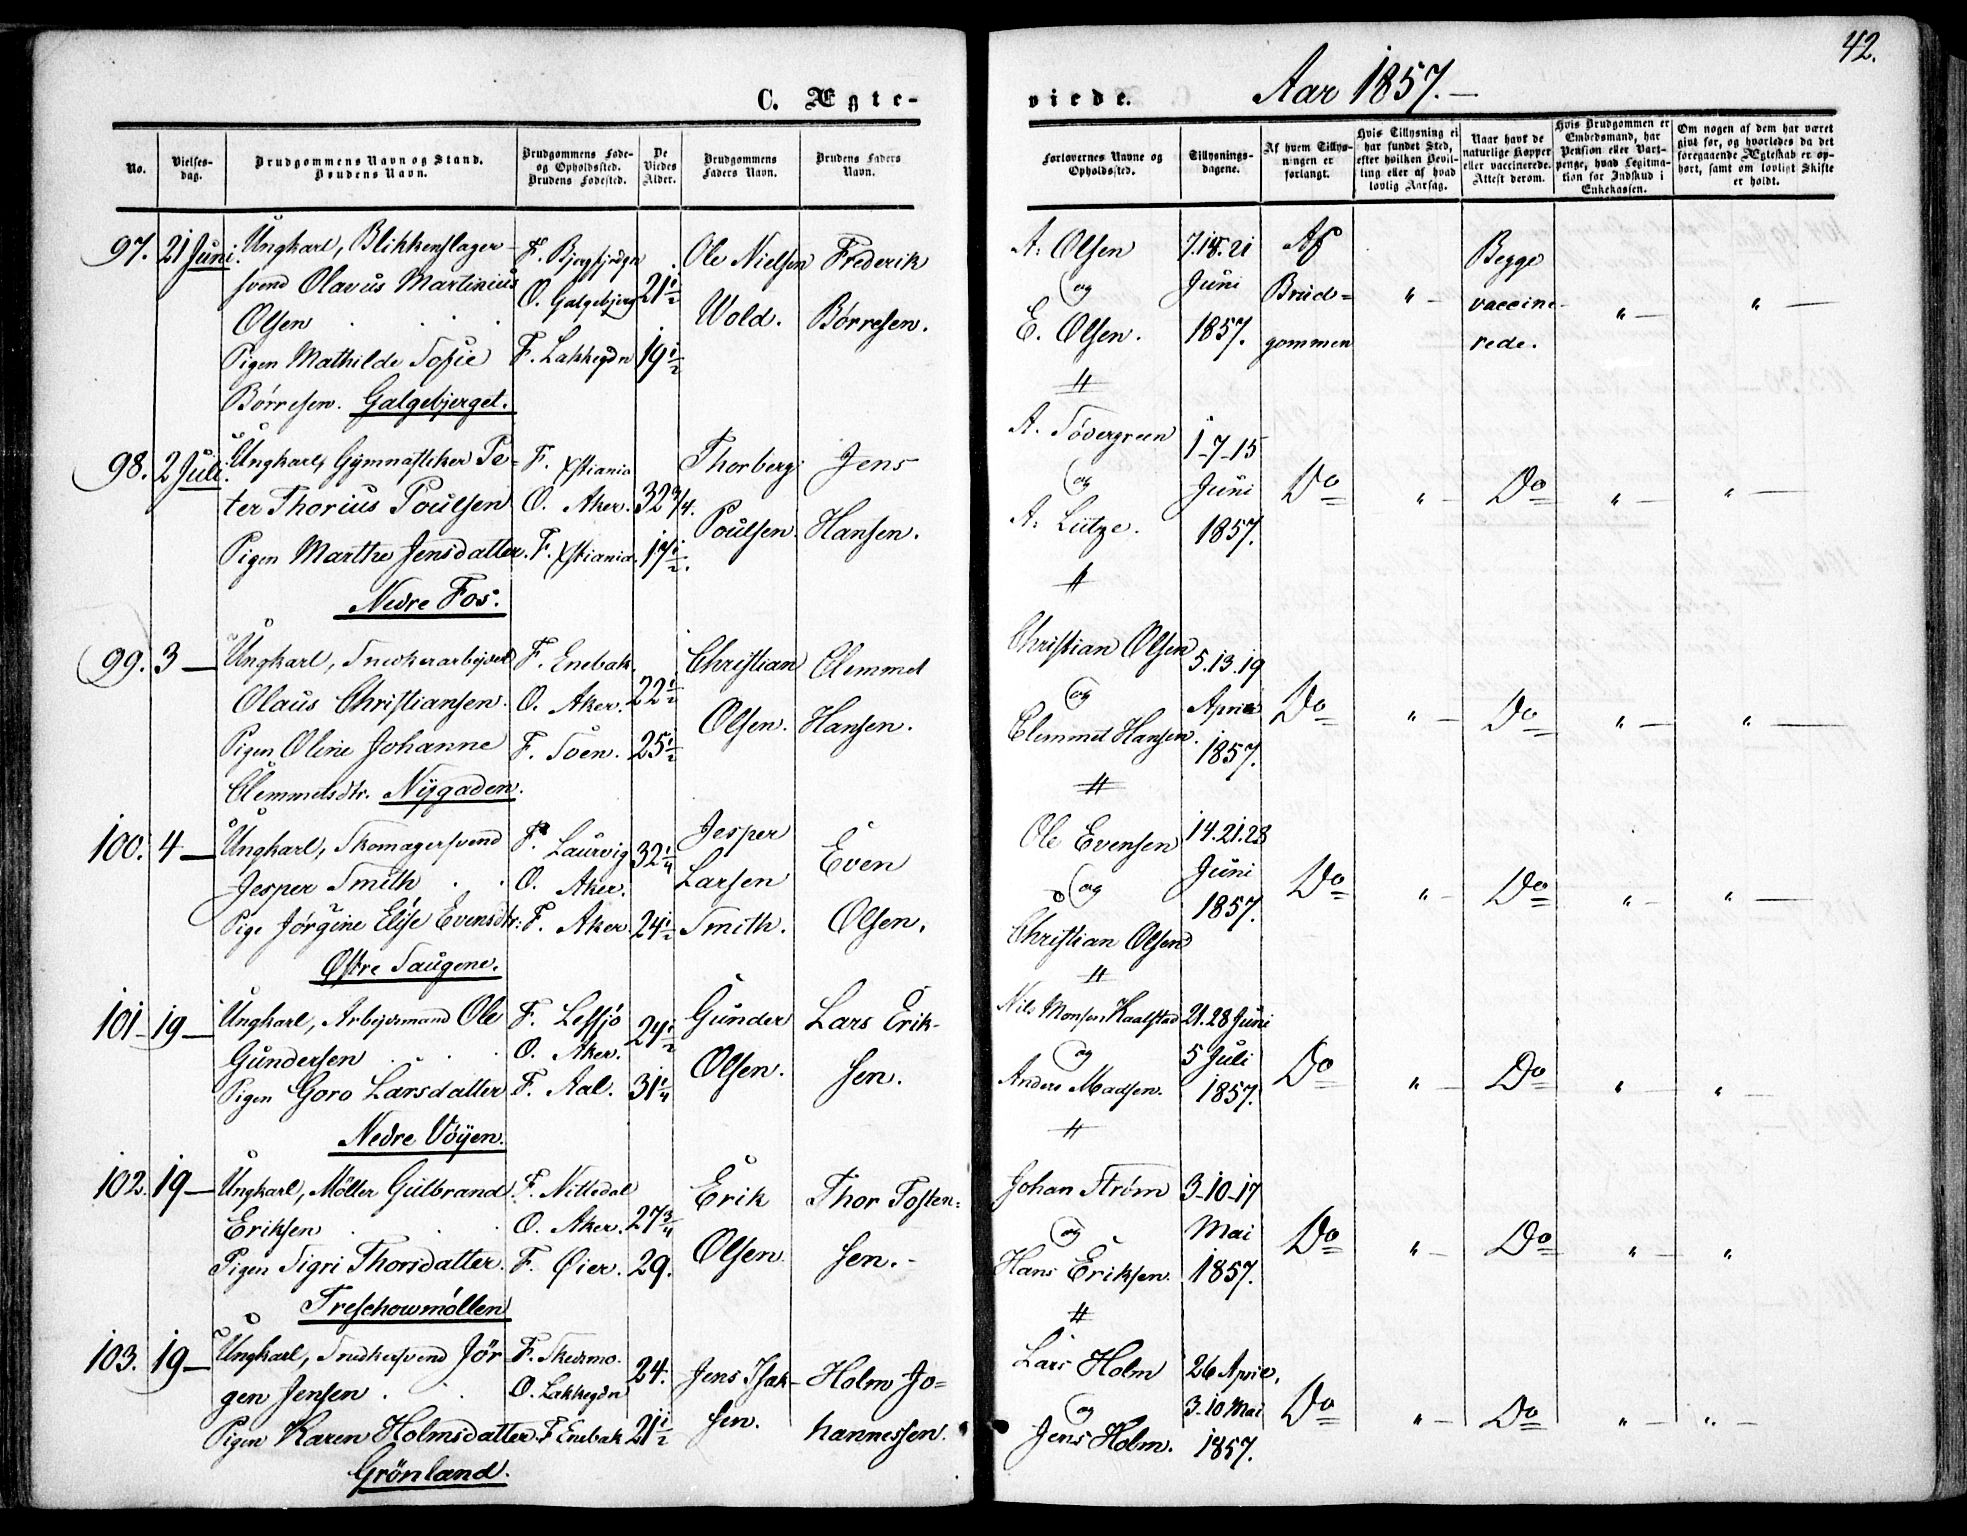 42.
C. Ægte-
viede.
Aar 1857.
No.
Vielses-
dag.
Brudgommens Navn og Stand.
Brudens Navn.
Brudgommens Føde-
og Opholdssted.
Brudens Fødested.
De
Viedes
Alder.
Brudgommens
Faders Navn.
Brudens Faders
Navn.
Forlovernes Navne og
Opholdssted.
Tillysnings-
dagene.
Af hvem Tillys-
ningen er
forlangt.
Hvis Tillysning ei
har fundet Sted,
efter hvilken Bevil-
ling eller af hvad
lovlig Aarsag.
Naar havt de
naturlige Kopper
eller vaccinerede.
Attest derom.
Hvis Brudgommen er
Embedsmand, har
Pension eller Vart-
penge, hvad Legitima-
tion for Indskud i
Enkekassen.
Om nogen af dem har været
givt før, og hvorledes da det
foregaaende Ægteskab er op-
hørt, samt om lovligt Skifte
er holdt.
97. 21 Juni. Ungkarl, Blikkenslager-
svend Olavus Martinius
Olsen
Pigen Mathilde Sofie
Børresen. Galgebjerget.
O. Galgebjerg 21 1/2
F. Lakkegdn 19 1/2
Ole Nielsen
Wold.
Frederik
Børresen.
A. Olsen
og
E. Olsen.
7.14.21
Juni
1857.
Af
Brud=
gommen
" -
Begge
vaccine-
rede.
" -
" -
98. 2 Juli. Ungkarl, Gymnastiker Pe-
ter Thorius Poulsen
Pigen Marthe Jensdatter.
Nedre Fos.
F. Xstiania
O. Aker. 32 3/4.
F. Xstiania. 17 1/2.
Thorberg
Poulsen.
Jens
Hansen.
A. Sövergreen
og
A. Lütze.
1-7-15
Juni
1857.
Do
" -
Do
" -
" -
99. 3 - Ungkarl, Snedkerarbejder
Olaus Christiansen.
Pigen Oline Johanne
Clemmetsdtr. Nÿgaden.
F. Enebak.
O. Aker. 22 1/2
F. Soen. 25 1/2
Christian
Olsen.
Clemmet
Hansen.
Christian Olsen
og
Clemmet Hansen.
5.13.19
April
1857.
Do
" -
Do
" -
" -
100. 4 - Ungkarl, Skomagersvend
Jesper Smith
Pige Jørgine Elise Evensdtr.
Østre Saugene.
F. Laurvig 32 1/4
O. Aker.
F. Aker. 24 1/2
Jesper
Larsen
Smith.
Even
Olsen.
Ole Evensen
og
Christian Olsen
14.21.28
Juni
1857.
Do
" -
Do
" -
" -
101 - 19 - Ungkarl, Arbejdsmand Ole
Gundersen
Pigen Goro Larsdatter
Nedre Vöÿen.
F. Lessjö 24 1/2
O. Aker.
F. Aal. 31 1/4
Gunder
Olsen.
Lars Erik-
sen.
Nils Monsen Kaalstad
og
Anders Madsen.
21.28 Juni
5 Juli
1857.
Do
" -
Do
"
" -
102. 19 - Ungkarl, Møller Gulbrand
Eriksen
Pigen Sigri Thorsdatter.
Treschowmöllen
F. Nittedal
O. Aker. 27 3/4
F. Øier. 29.
Erik
Olsen
Thor Tosten=
sen.-
Johan Strøm
og
Hans Eriksen.
3-10-17
Mai
1857.
Do
" -
Do
" -
"
103. 19 - Ungkarl, Snedkersvend Jör-
gen Jensen.
Pigen Karen Holmsdatter.
Grönland.
F. Skedsmo. 24.
O. Lakkegdn
F. Enebak 21 1/2
Jens Isak-
sen.
Holm Jo=
hannessen.
Lars Holm
og
Jens Holm.
26 April,
3-10 Mai
1857.
Do
" -
Do
" -
" -